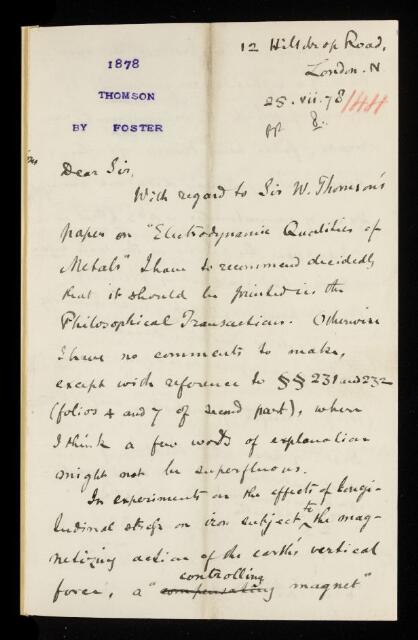 12 Hilldrop Road,
London. N
1878
THOMSON
BY FOSTER
25. vii. 78
144
pp 8.
Dear Sir,
With regard to Sir W. Thomson's
paper on "Electrodynamic Qualities of
Metals" I have to recommend decidedly
that it should be printed in the
Philosophical Transactions. Otherwise
I have no comments to make,
except with reference to §§ 231 and 232
(folios 4 and 7 of second part), where
I think a few words of explanation
might not be superfluous.
In experiments on the effects of longi-
tudinal stress on iron subject to the mag-
netizing action of the earth's vertical
controlling
force, a "compensating magnet"